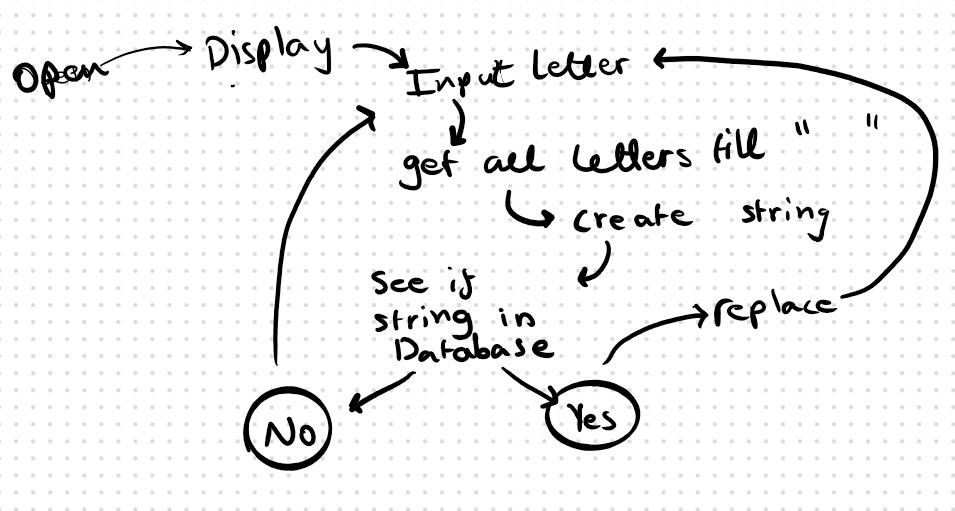 Open
Display
Input letter
get all letters till " "
create string
See if
string in
Database
replace
No
Yes